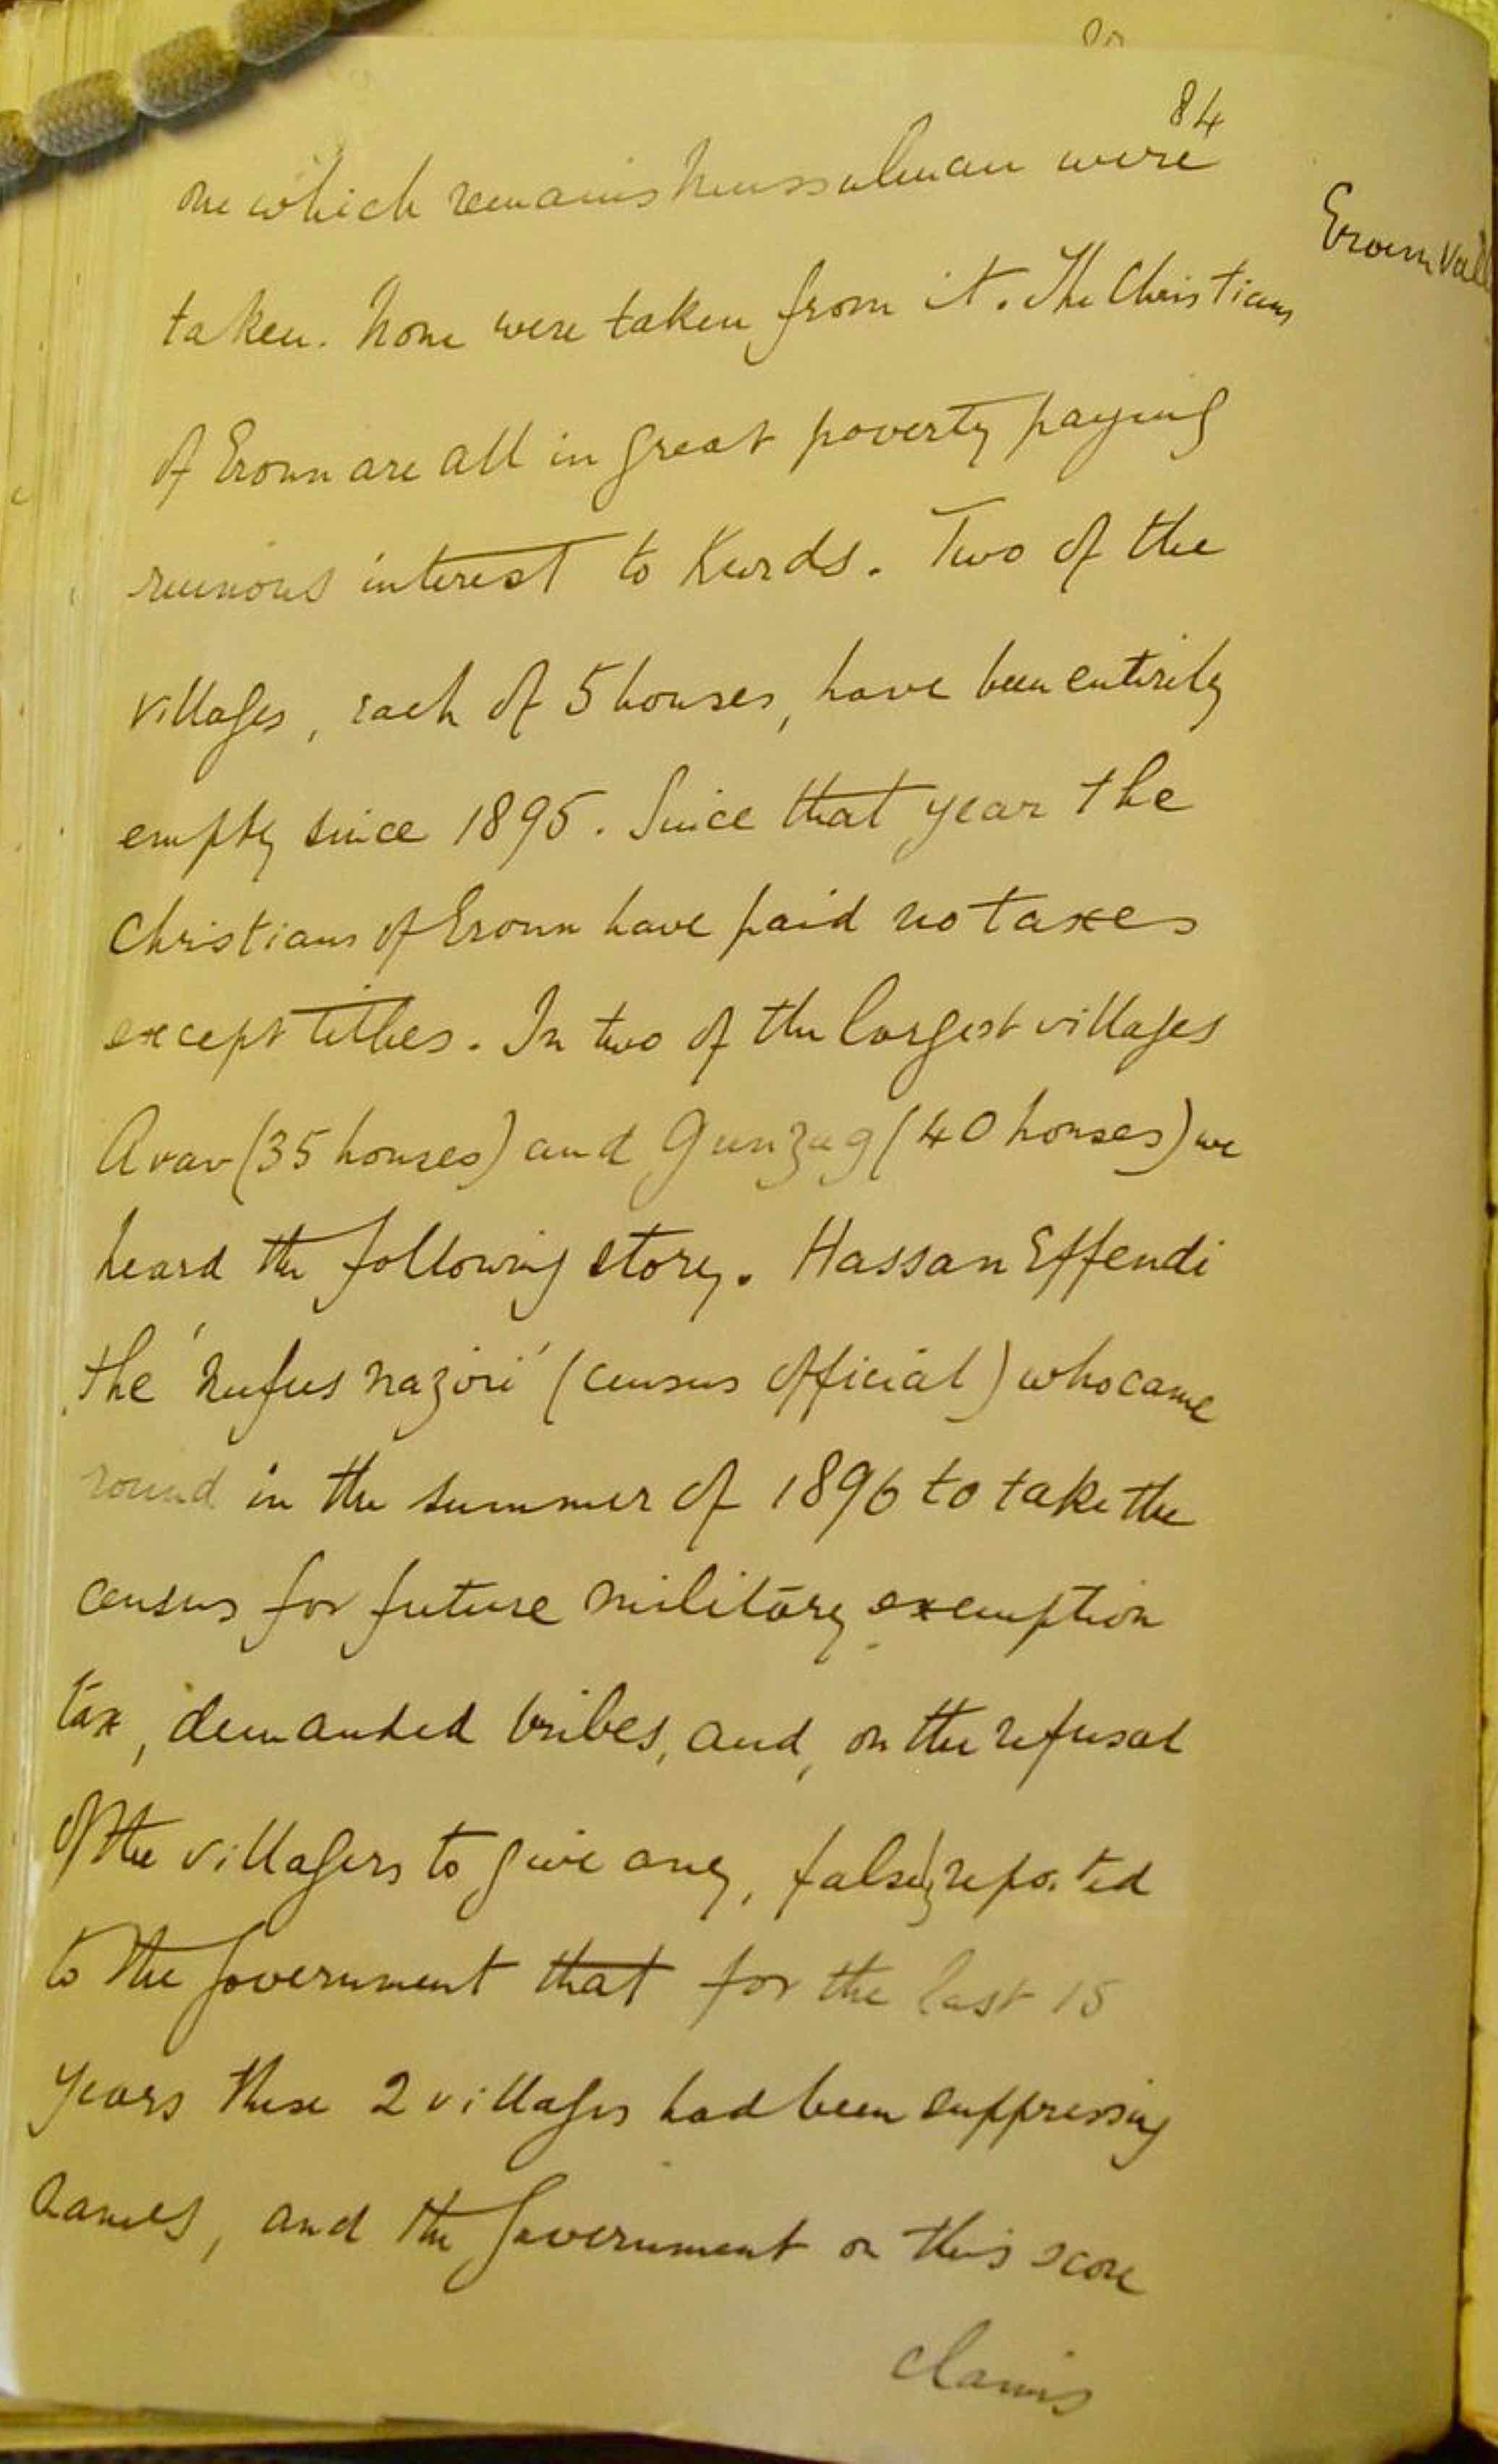 84
one which remains Mussulman were
Eroun Vall
taken. None were taken from it. The Christians
of Eroun are all in great poverty paying
ruinous interest to Kurds. Two of the
villages, each of 5 houses, have been entirely
empty since 1895. Since that year the
Christians of Eroun have paid no taxes
except tithes. In two of the largest villages
Avav (35 houses) and Gunzag (40 houses) we
heard the following story. Hassan Effendi
the 'Nufus naziri' (census official) who came
round in the summer of 1896 to take the
census for future military exemption
tax, demanded bribes, and, on the refusal
of the villagers to give any, falsely reported
to the Government that for the last 15
years these 2 villages had been suppressing
names, and the Government on this score
claims